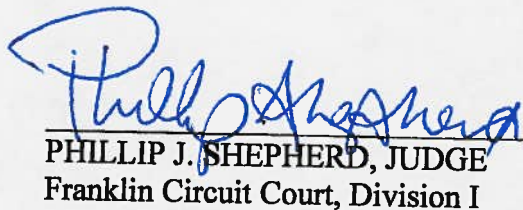 Phillip Shepherd
PHILLIP J. SHEPHERD, JUDGE
Franklin Circuit Court, Division I